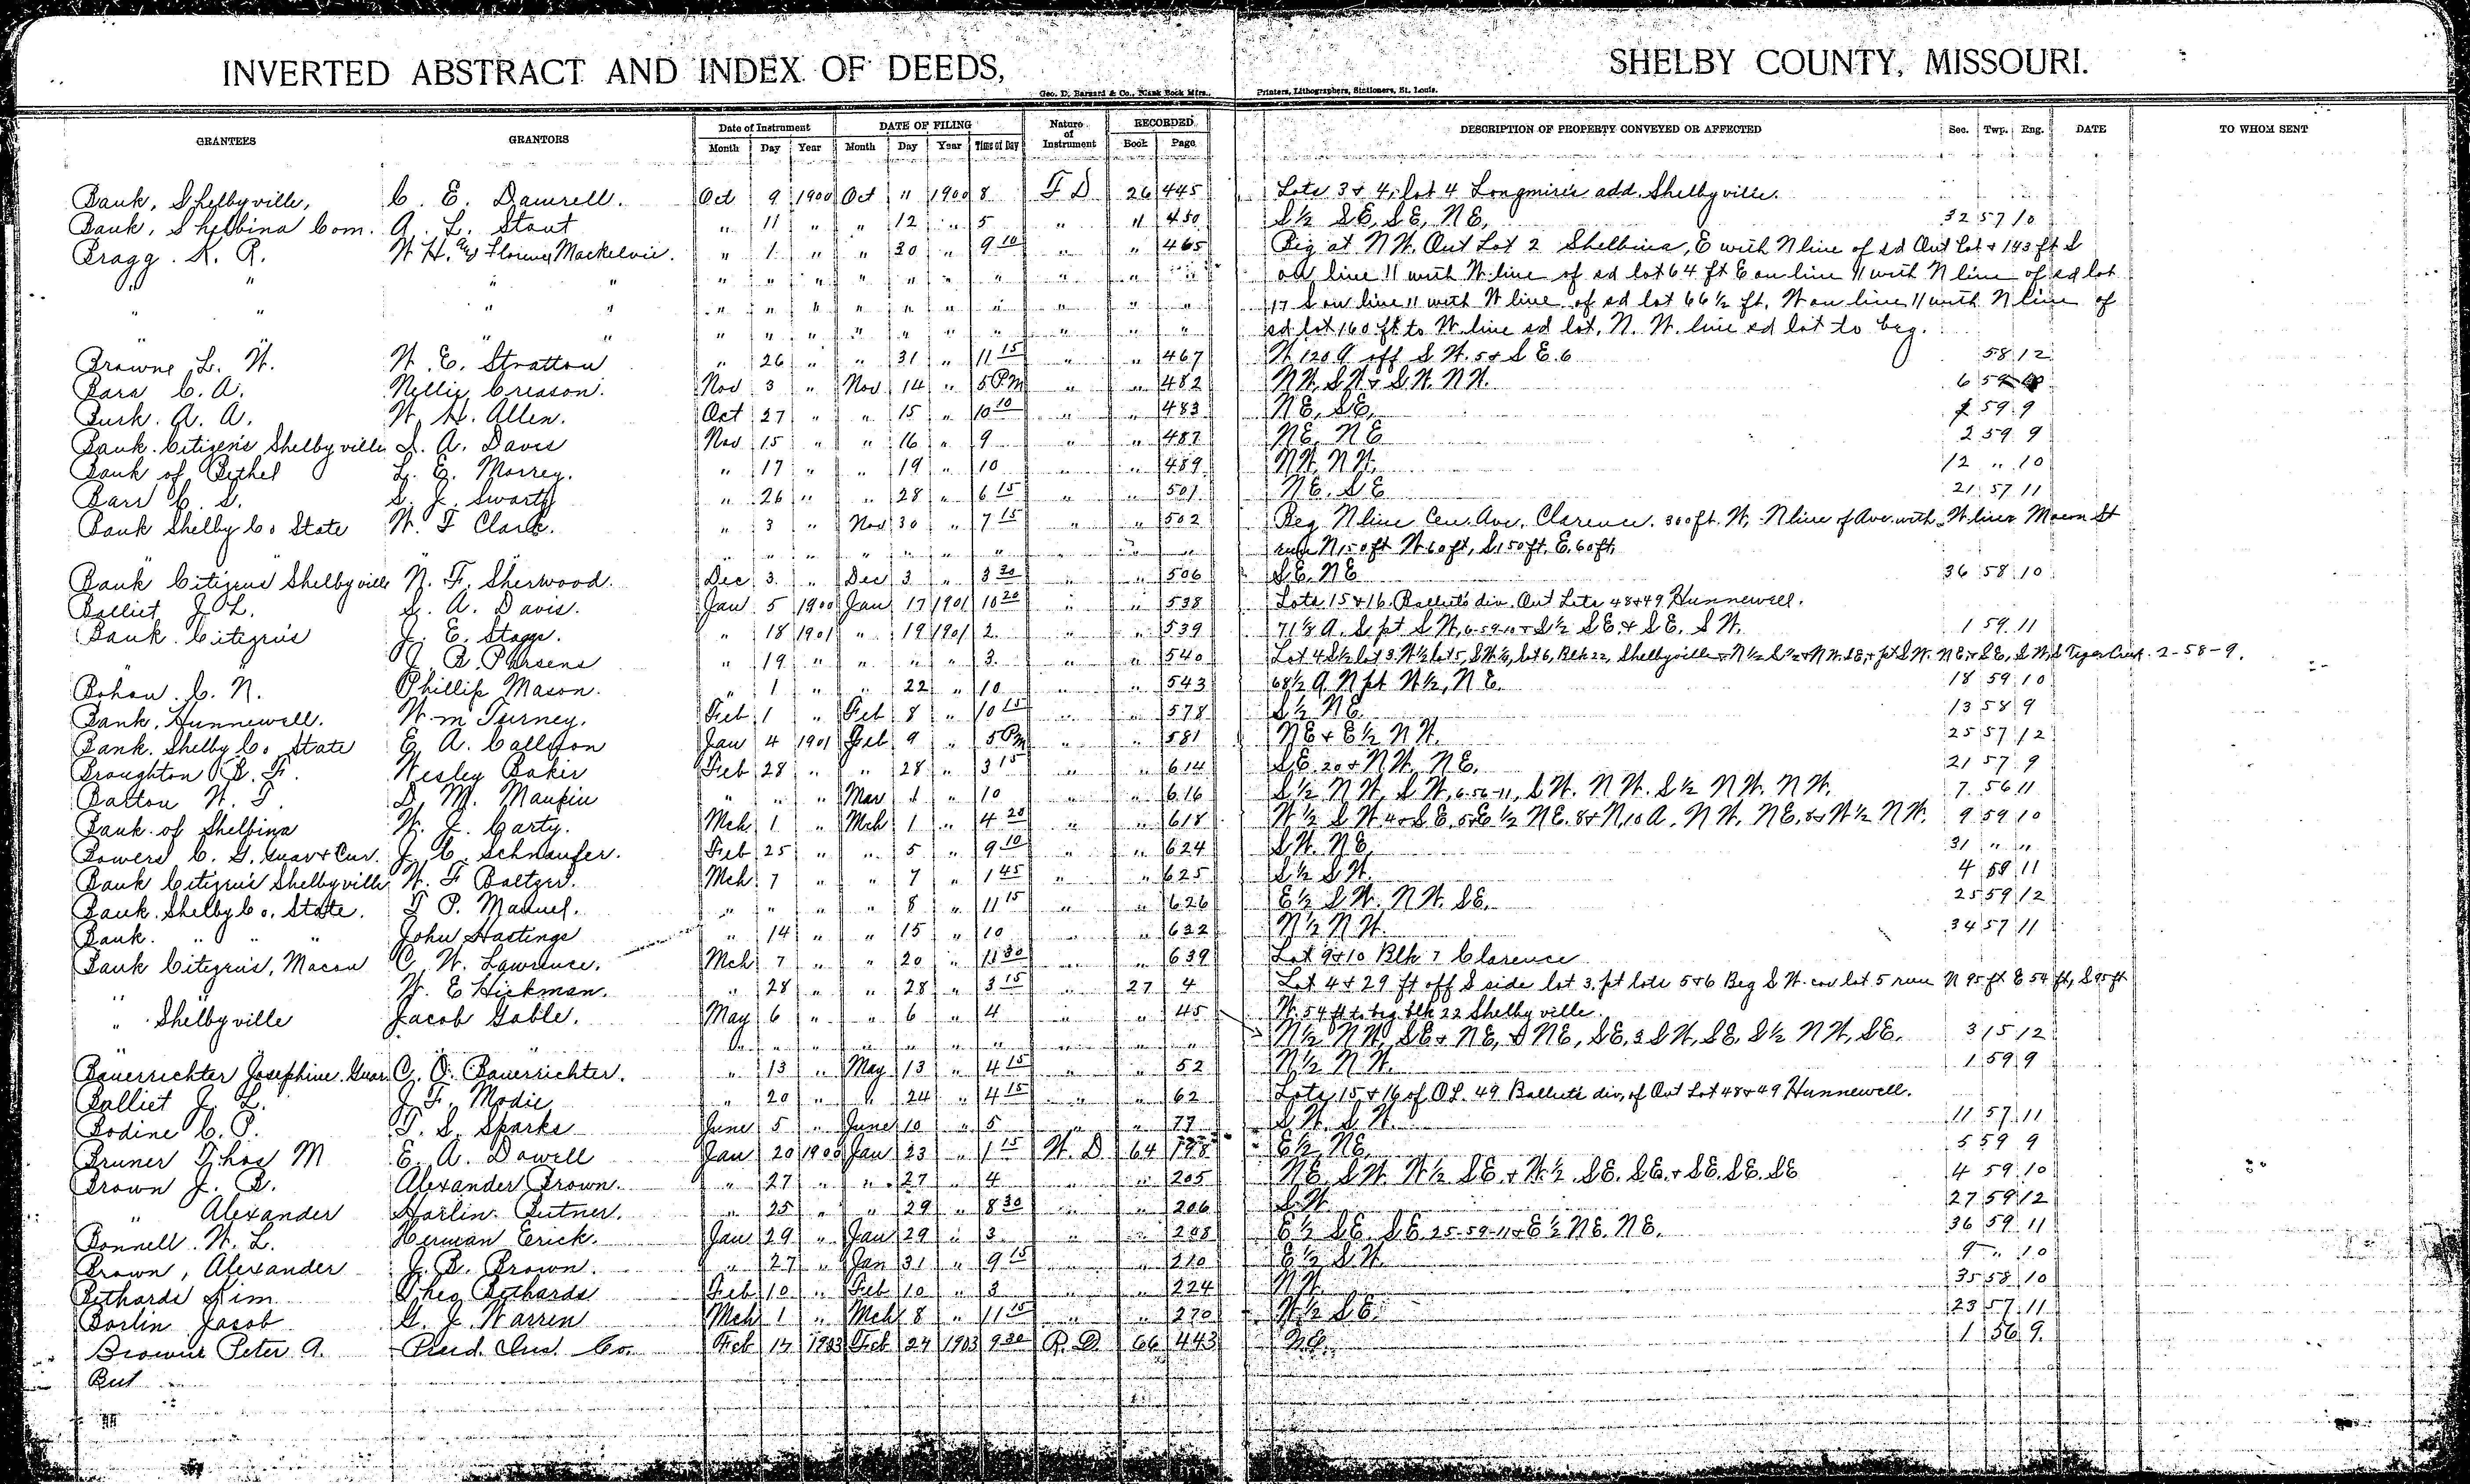 INVERTED ABSTRACT AND INDEX OF DEEDS, SHELBY COUNTY, MISSOURI.
Geo. D. Barnard & Co., Blank Book Mfrs., Printers, Lithographers, Stationers, St. Louis.
GRANTEES GRANTORS Date of Instrument DATE OF FILING Nature of Instrument RECORDED DESCRIPTION OF PROPERTY CONVEYED OR AFFECTED Sec. Twp. Rng. DATE TO WHOM SENT
Month Day Year Month Day Year Time of Day Book Page
Bank, Shelbyville, C. E. Damrell. Oct 9 1900 Oct " 1900 8 T D 26 445 Lots 3 & 4, lot 4 Longmire's add. Shelbyville.
Bank, Shelbina Com. A. L. Stout " 11 " " 12 " 5 " " 450 S½ SE, SE, NE, 32 57 10
Bragg. K. R. W. H. and Florence Mackelvie. " 1 " " 30 " 9 10 " " 465 Beg at NW. Out Lot 2 Shelbina, E with N line of sd Out Lot & 143 ft S
" " " " " " " " " " " " " " on line 11 with W. line of sd lot 64 ft E on line 11 with N line of sd lot
" " " " " " " " " " " " " " 17 S on line 11 with W line of sd lot 66½ ft. W on line 11 with N line of
" " " " " " " " " " " " " " sd lot 160 ft to W. line sd lot, N. W. line sd lot to beg.
Browne L. W. W. E. Stratton " 26 " " 31 " 11 15 " " 467 W 120 A off S W. 5 & S E. 6 58 12
Bara C. A. Nellie Creason. Nov 3 " Nov 14 " 5 Pm " " 482 NW, SW & S.W. NW. 6 59
Burk. A. A. W. H. Allen. Oct 27 " " 15 " 10 10 " " 483 NE, SE, 59 9
Bank. Citizens Shelbyville S. A. Davis Nov 15 " " 16 " 9 " " 487 NE, NE 2 59 9
Bank of Bethel L. E. Morrey. " 17 " " 19 " 10 " " 489 NW, NW. 12 " 10
Barr C. S. S. J. Swartz " 26 " " 28 " 6 15 " " 501 NE. SE 21 57 11
Bank Shelby Co State W. F Clark. " 3 " Nov 30 " 7 15 " " 502 Beg N line Cen. Ave, Clarence. 300 ft. W, N line of Ave. with W. line Macon St
" " " " " " " " " run N 150 ft W 60 ft, S 150 ft, E. 60 ft,
Bank Citizens Shelbyville N. F. Sherwood. Dec 3 " Dec 3 " 3 30 " " 506 S.E. NE 36 58 10
Balliet J L. S. A. Davis. Jan 5 1900 Jan 17 1901 10 20 " " 538 Lots 15 & 16. Balliet's div. Out Lots 48 & 49 Hunnewell.
Bank. Citizens J. E. Staggs. " 18 1901 " 19 1901 2. " " 539 71⅓ A. S. pt S W, 6-59-10 & S½ SE & SE. SW. 1 59 11
J. B. Parsons " 19 " " " " 3. " " 540 Lot 4 S½ lot 3. W½ lot 5, SW.¼, lot 6, Blk 22, Shelbyville & N½ S½ & NW. SE, & pt SW. NE, & SE, SW, S Tiger Creek. 2-58-9.
Bohon. C. N. Phillip Mason. " 1 " " 22 " 10 " " 543 68½ A N pt W½, NE. 18 59 10
Bank, Hunnewell. Wm Turney. Feb 1 " Feb 8 " 10 15 " " 578 S½ NE. 13 58 9
Bank. Shelby Co State E. A. Callison Jan 4 1901 Feb 9 " 5 Pm " " 581 NE & E½ NW. 25 57 12
Broughton B. F. Wesley Baker Feb 28 " " 28 " 3 15 " " 614 SE. 20 & NW, NE. 21 57 9
Barton W. T. D. M. Maupin " " " Mar 1 " 10 " " 616 S½ NW, SW, 6-56-11, SW. NW. S½ NW. NW. 7 56 11
Bank of Shelbina W. J. Carty. Mch 1 " Mch 1 " 4 20 " " 618 W½ SW. 4 & SE. 5 & E½ NE. 8 & N, 10 A. NW, NE. 8 & W½ NW. 9 59 10
Bowers C. G. Guar & Cur. J. C. Schnaufer. Feb 25 " " 5 " 9 10 " " 624 SW. NE, 31 " "
Bank Citizens Shelbyville W. F Baltzer. Mch 7 " " 7 " 1 45 " " 625 S½ SW. 4 58 11
Bank. Shelby Co. State. T. P. Manuel. " " " " 8 " 11 15 " " 626 E½ SW. NW. SE. 25 59 12
Bank. " " " John Hastings " 14 " " 15 " 10 " " 632 N½ NW. 34 57 11
Bank Citizens, Macon C. W. Lawrence. Mch 7 " " 20 " 11 30 " " 639 Lot 9 & 10 Blk 7 Clarence
W. E Hickman. " 28 " " 28 " 3 15 " 27 4 Lot 4 & 29 ft off S side lot 3. pt lots 5 & 6 Beg SW. cor lot 5 run N 95 ft E 54 ft, S 95 ft
" Shelbyville Jacob Gable. May 6 " " 6 " 4 " " 45 W. 54 ft to beg. blk 22 Shelbyville
" " " " " " " " " " " N½ NW, SE & NE, & NE, SE, 3 SW, SE, S½ NW, SE. 31 5 12
Bauerrichter Josephine Guar. C. O. Bauerrichter. " 13 " May 13 " 4 15 " " 52 N½ NW. 1 59 9
Balliet J. L. J. F. Modie " 20 " " 24 " 4 15 " " 62 Lots 15 & 16 of O.L. 49 Balliet's div, of Out Lot 48 & 49 Hunnewell.
Bodine C. P. T. S. Sparks June 5 " June 10 " 5 " " 77 SW. SW. 11 57 11
Bruner Thos M E. A. Dowell Jan 20 1900 Jan 23 " 1 15 W. D 64 198 E½, NE, 5 59 9
Brown J. B. Alexander Brown. " 27 " " 27 " 4 " " 205 NE, SW. W½ SE. & W½. SE. SE. & SE. SE. SE 4 59 10
" Alexander Harlin Butner. " 25 " " 29 " 8 30 " " 206 S.W. 27 59 12
Bonnell. W. L. Herman Erick. Jan 29 " Jan 29 " 3 " " 208 E½ SE. SE 25-59-11 & E½ NE. NE. 36 59 11
Brown, Alexander J. B. Brown. " 27 " Jan 31 " 9 15 " " 210 E½ SW. 9 " 10
Bethards Sim Theo Bethards Feb 10 " Feb 10 " 3 " " 224 NW. 35 58 10
Borlin Jacob G. J. Warren Mch 1 " Mch 8 " 11 15 " " 270 W½ SE. 23 57 11
Browne Peter A. Prud. Ins. Co. Feb 17 1903 Feb 24 1903 9 30 R. D. 66 443 NE. 1 56 9
But